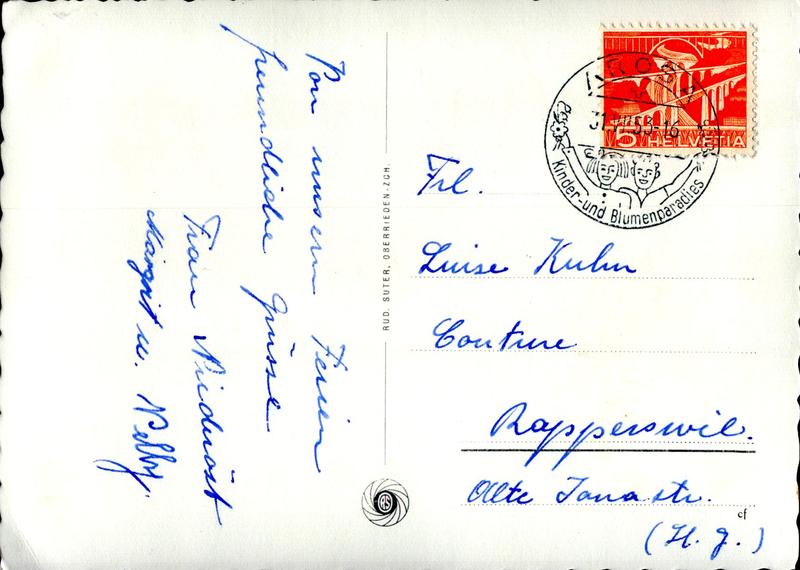 Von unsern Ferien
freundliche Grüsse
Frau Niederöst
Margrit u. Nelly.
RUD. SUTER, OBERRIEDEN-ZCH.
AROSA
5 HELVETIA
Kinder- und Blumenparadies
Frl.
Luise Kuhn
Couture
Rapperswil.
Alte Jonastr.
(St. G.)
cf